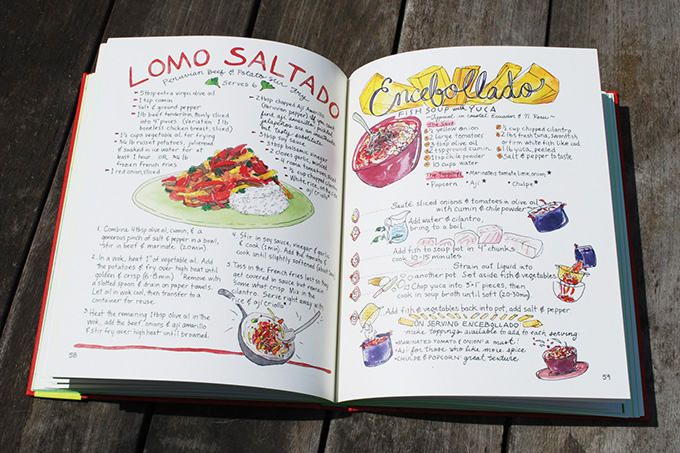 LOMO SALTADO
Peruvian Beef & Potato Stir Fry
Serves 6
- 5 tbsp extra virgin olive oil
- 1 tsp cumin
- Salt & ground pepper
- 1 lb beef tenderloin, thinly sliced
into ½" pieces (Variation: 1 lb
boneless chicken breast, sliced)
- 1½ cups vegetable oil for frying
lb russet potatoes, julienned
& soaked in ice water for at
least 1 hour OR lb
frozen french fries
- 1 red onion, sliced
- 2 tbsp chopped Aji Amarillo
(Peruvian pepper) If you can't
find aji amarillo, pickled
jalapeños are an
but tasty substitute
soy sauce
balsamic vinegar
- 2 cloves garlic, minced
- 4 roma tomatoes,
- ½ cup chopped cilantro
- White rice, on the side
- aji criollo
1. Combine 4 tbsp olive oil, cumin, & a
generous pinch of salt & pepper in a bowl,
stir in beef & marinate. (20 min)
2. In a wok, heat 1" of vegetable oil. Add
the potatoes & fry over high heat until
golden & crisp (6-8 min) Remove with
a slotted spoon & drain on paper towels.
Let oil in wok cool, then transfer to a
container for reuse.
3. Heat the remaining 1 tbsp olive oil in the
wok, add the beef, onions & aji amarillo
& stir fry over high heat until browned.
4. Stir in soy sauce, vinegar & garlic
& cook (2 min). Add the tomatoes &
cook until slightly softened
5. Toss in the french fries last so they
get covered in sauce but remain
somewhat crisp. Mix in the
cilantro. Serve right away with
rice & aji criollo
58
Encebollado
FISH SOUP with YUCA
Typical in coastal Ecuador & N. Peru
The Soup
½ yellow onion
2 large tomatoes
3 tbsp olive oil
2 tsp ground cumin
1 tsp chile powder
10 cups water
½ cup chopped cilantro
2 lbs fresh tuna, swordfish
or firm white fish like cod
1 lb yuca, peeled
Salt & pepper to taste
The Toppings
• Marinated tomato, lime, onion
• Popcorn • Aji • Chulpe
Sauté sliced onions & tomatoes in olive oil
with cumin & chile powder
Add water & cilantro,
bring to a boil
Add fish to soup pot in 4" chunks,
cook 10-15 minutes
Strain out liquid into
another pot. Set aside fish & vegetables
Chop yuca into 3×1" pieces, then
cook in soup broth until soft (20-30 min)
Add fish & vegetables back into pot, add salt & pepper
ON SERVING ENCEBOLLADO
make toppings available to add to each serving
• MARINATED TOMATO & ONION a must!
• AJI for those who like more spice
• CHULPE & POPCORN: great texture
59